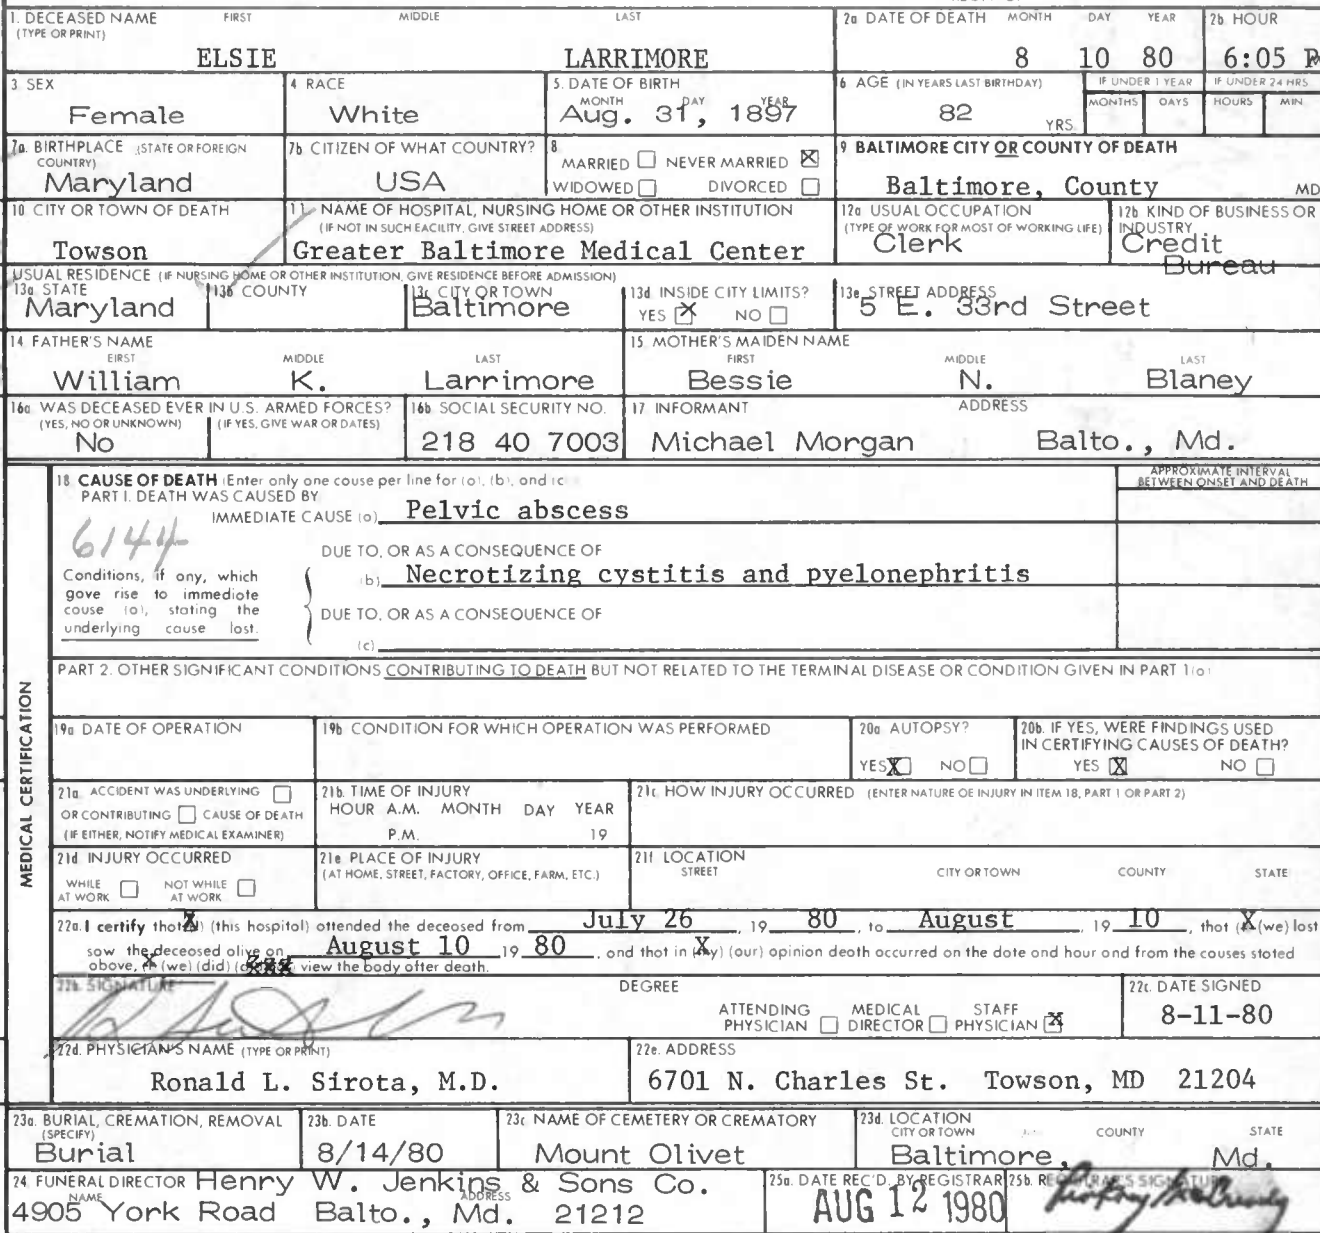 1. DECEASED NAME FIRST MIDDLE LAST
(TYPE OR PRINT)
ELSIE LARRIMORE
2a DATE OF DEATH MONTH DAY YEAR
8 10 80
2b HOUR
6:05 P
3 SEX
Female
4 RACE
White
5. DATE OF BIRTH
MONTH DAY YEAR
Aug. 31, 1897
6 AGE (IN YEARS LAST BIRTHDAY)
82 YRS
IF UNDER 1 YEAR
MONTHS DAYS
IF UNDER 24 HRS
HOURS MIN.
7a. BIRTHPLACE (STATE OR FOREIGN
COUNTRY)
Maryland
7b CITIZEN OF WHAT COUNTRY?
USA
8
MARRIED ☐ NEVER MARRIED ☒
WIDOWED ☐ DIVORCED ☐
9 BALTIMORE CITY OR COUNTY OF DEATH
Baltimore, County MD
10 CITY OR TOWN OF DEATH
Towson
11. NAME OF HOSPITAL, NURSING HOME OR OTHER INSTITUTION
(IF NOT IN SUCH FACILITY, GIVE STREET ADDRESS)
Greater Baltimore Medical Center
12a USUAL OCCUPATION
(TYPE OF WORK FOR MOST OF WORKING LIFE)
Clerk
12b KIND OF BUSINESS OR
INDUSTRY
Credit
Bureau
USUAL RESIDENCE (IF NURSING HOME OR OTHER INSTITUTION, GIVE RESIDENCE BEFORE ADMISSION)
13a STATE
Maryland
13b COUNTY
13c CITY OR TOWN
Baltimore
13d INSIDE CITY LIMITS?
YES ☒ NO ☐
13e STREET ADDRESS
5 E. 33rd Street
14 FATHER'S NAME
FIRST MIDDLE LAST
William K. Larrimore
15 MOTHER'S MAIDEN NAME
FIRST MIDDLE LAST
Bessie N. Blaney
16a WAS DECEASED EVER IN U.S. ARMED FORCES?
(YES, NO OR UNKNOWN) (IF YES, GIVE WAR OR DATES)
No
16b SOCIAL SECURITY NO.
218 40 7003
17 INFORMANT ADDRESS
Michael Morgan Balto., Md.
MEDICAL CERTIFICATION
18 CAUSE OF DEATH (Enter only one cause per line for (a), (b), and (c
PART I. DEATH WAS CAUSED BY
APPROXIMATE INTERVAL
BETWEEN ONSET AND DEATH
IMMEDIATE CAUSE (a) Pelvic abscess
6144
DUE TO, OR AS A CONSEQUENCE OF
(b) Necrotizing cystitis and pyelonephritis
Conditions, if any, which
gave rise to immediate
cause (a), stating the
underlying cause last.
DUE TO, OR AS A CONSEQUENCE OF
(c)
PART 2. OTHER SIGNIFICANT CONDITIONS CONTRIBUTING TO DEATH BUT NOT RELATED TO THE TERMINAL DISEASE OR CONDITION GIVEN IN PART 1(a)
19a DATE OF OPERATION
19b CONDITION FOR WHICH OPERATION WAS PERFORMED
20a AUTOPSY?
YES ☒ NO ☐
20b. IF YES, WERE FINDINGS USED
IN CERTIFYING CAUSES OF DEATH?
YES ☒ NO ☐
21a ACCIDENT WAS UNDERLYING ☐
OR CONTRIBUTING ☐ CAUSE OF DEATH
(IF EITHER, NOTIFY MEDICAL EXAMINER)
21b. TIME OF INJURY
HOUR A.M. MONTH DAY YEAR
P.M. 19
21c HOW INJURY OCCURRED (ENTER NATURE OF INJURY IN ITEM 18, PART 1 OR PART 2)
21d INJURY OCCURRED
WHILE AT WORK ☐ NOT WHILE AT WORK ☐
21e PLACE OF INJURY
(AT HOME, STREET, FACTORY, OFFICE, FARM, ETC.)
21f LOCATION
STREET CITY OR TOWN COUNTY STATE
22a. I certify that (X) (this hospital) attended the deceased from July 26, 19 80, to August, 19 10, that (X) (we) last
saw the deceased alive on August 10 19 80, and that in (my) (our) opinion death occurred on the date and hour and from the causes stated
above, (X) (we) (did) (XXX) view the body after death.
22b. SIGNATURE DEGREE
ATTENDING PHYSICIAN ☐ MEDICAL DIRECTOR ☐ STAFF PHYSICIAN ☒
22c. DATE SIGNED
8-11-80
22d. PHYSICIAN'S NAME (TYPE OR PRINT)
Ronald L. Sirota, M.D.
22e. ADDRESS
6701 N. Charles St. Towson, MD 21204
23a. BURIAL, CREMATION, REMOVAL
(SPECIFY)
Burial
23b. DATE
8/14/80
23c NAME OF CEMETERY OR CREMATORY
Mount Olivet
23d. LOCATION
CITY OR TOWN COUNTY STATE
Baltimore, Md.
24 FUNERAL DIRECTOR Henry W. Jenkins & Sons Co.
NAME ADDRESS
4905 York Road Balto., Md. 21212
25a. DATE REC'D. BY REGISTRAR
AUG 12 1980
25b. REGISTRAR'S SIGNATURE